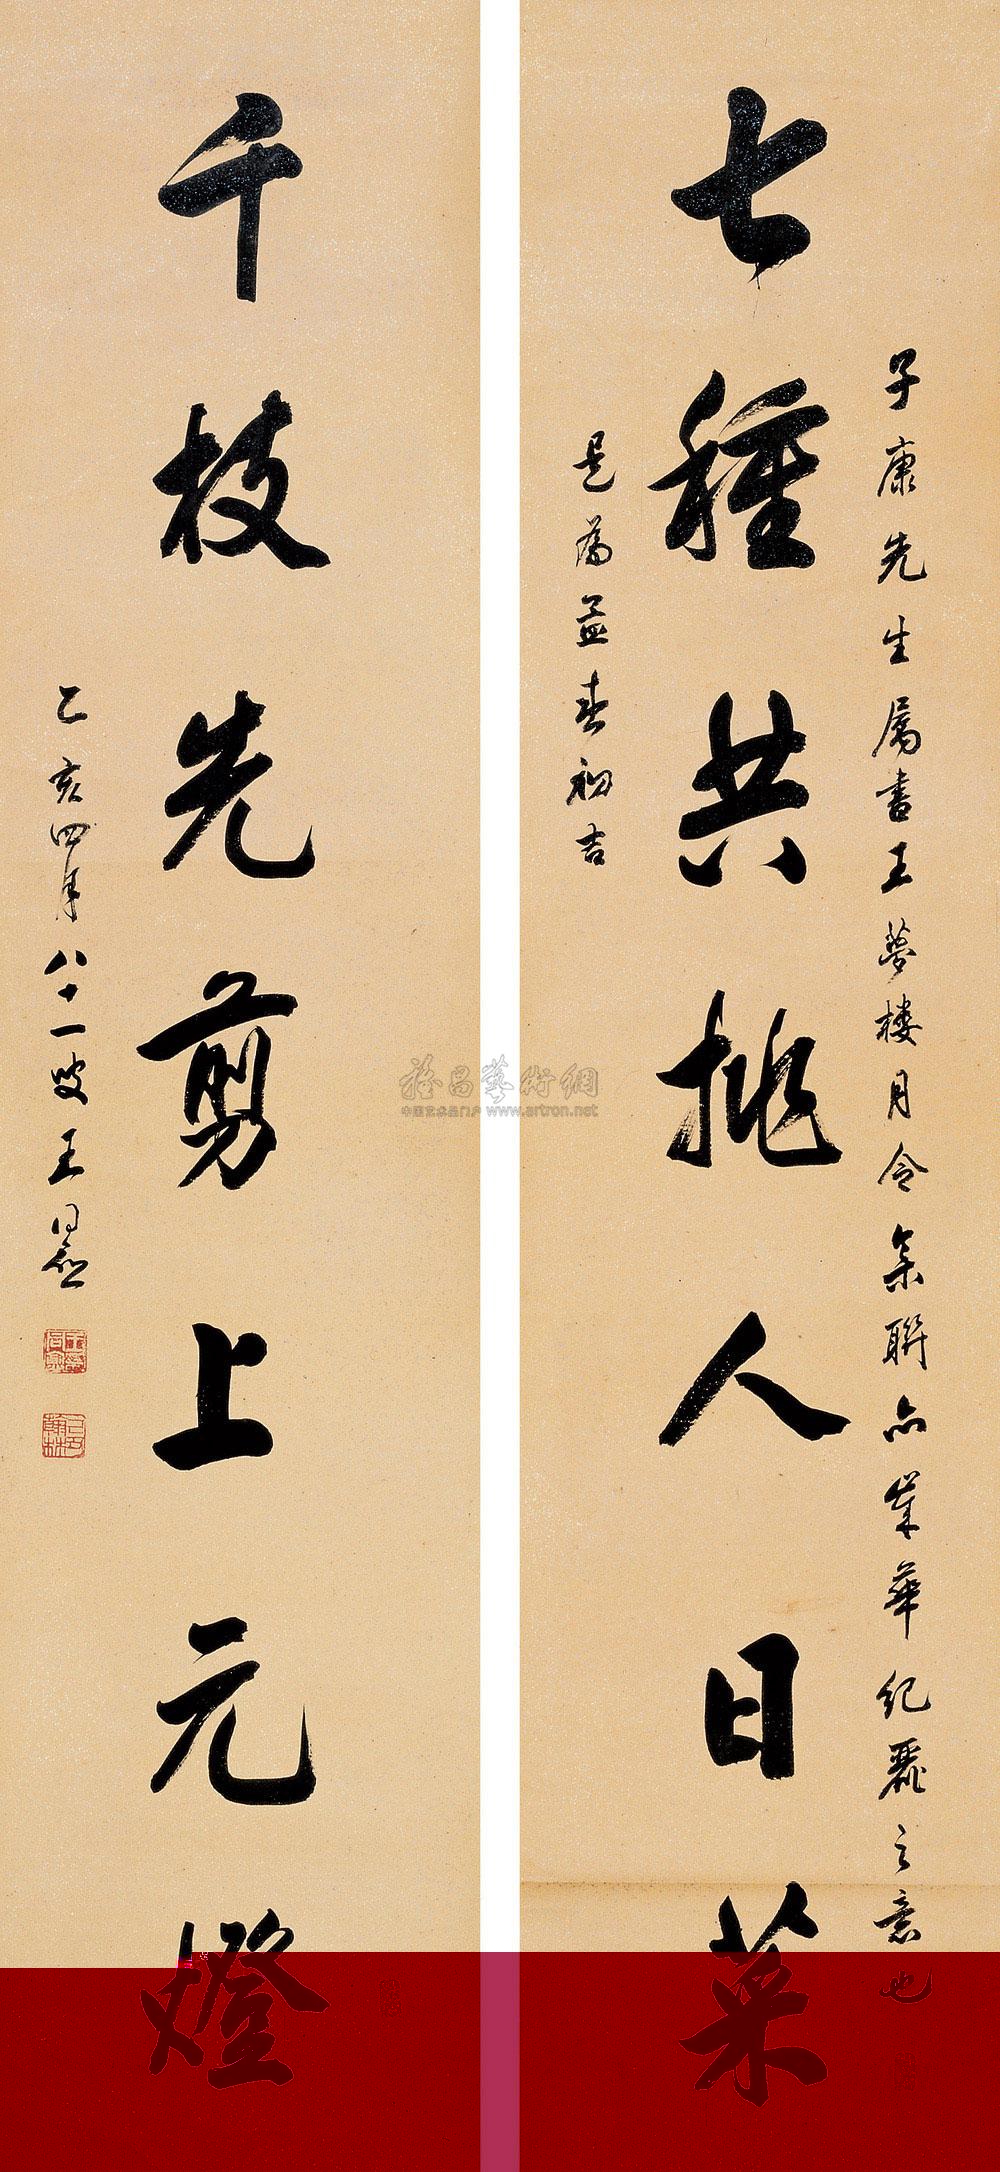 子康先生属書王夢楼月令集聯亦歲華紀麗之意也
七種共挑人日菜
是為孟春初吉
千枝先剪上元燈
乙亥四月八十一叟王同愈
雅昌藝術網
中国艺术品门户 www.artron.net